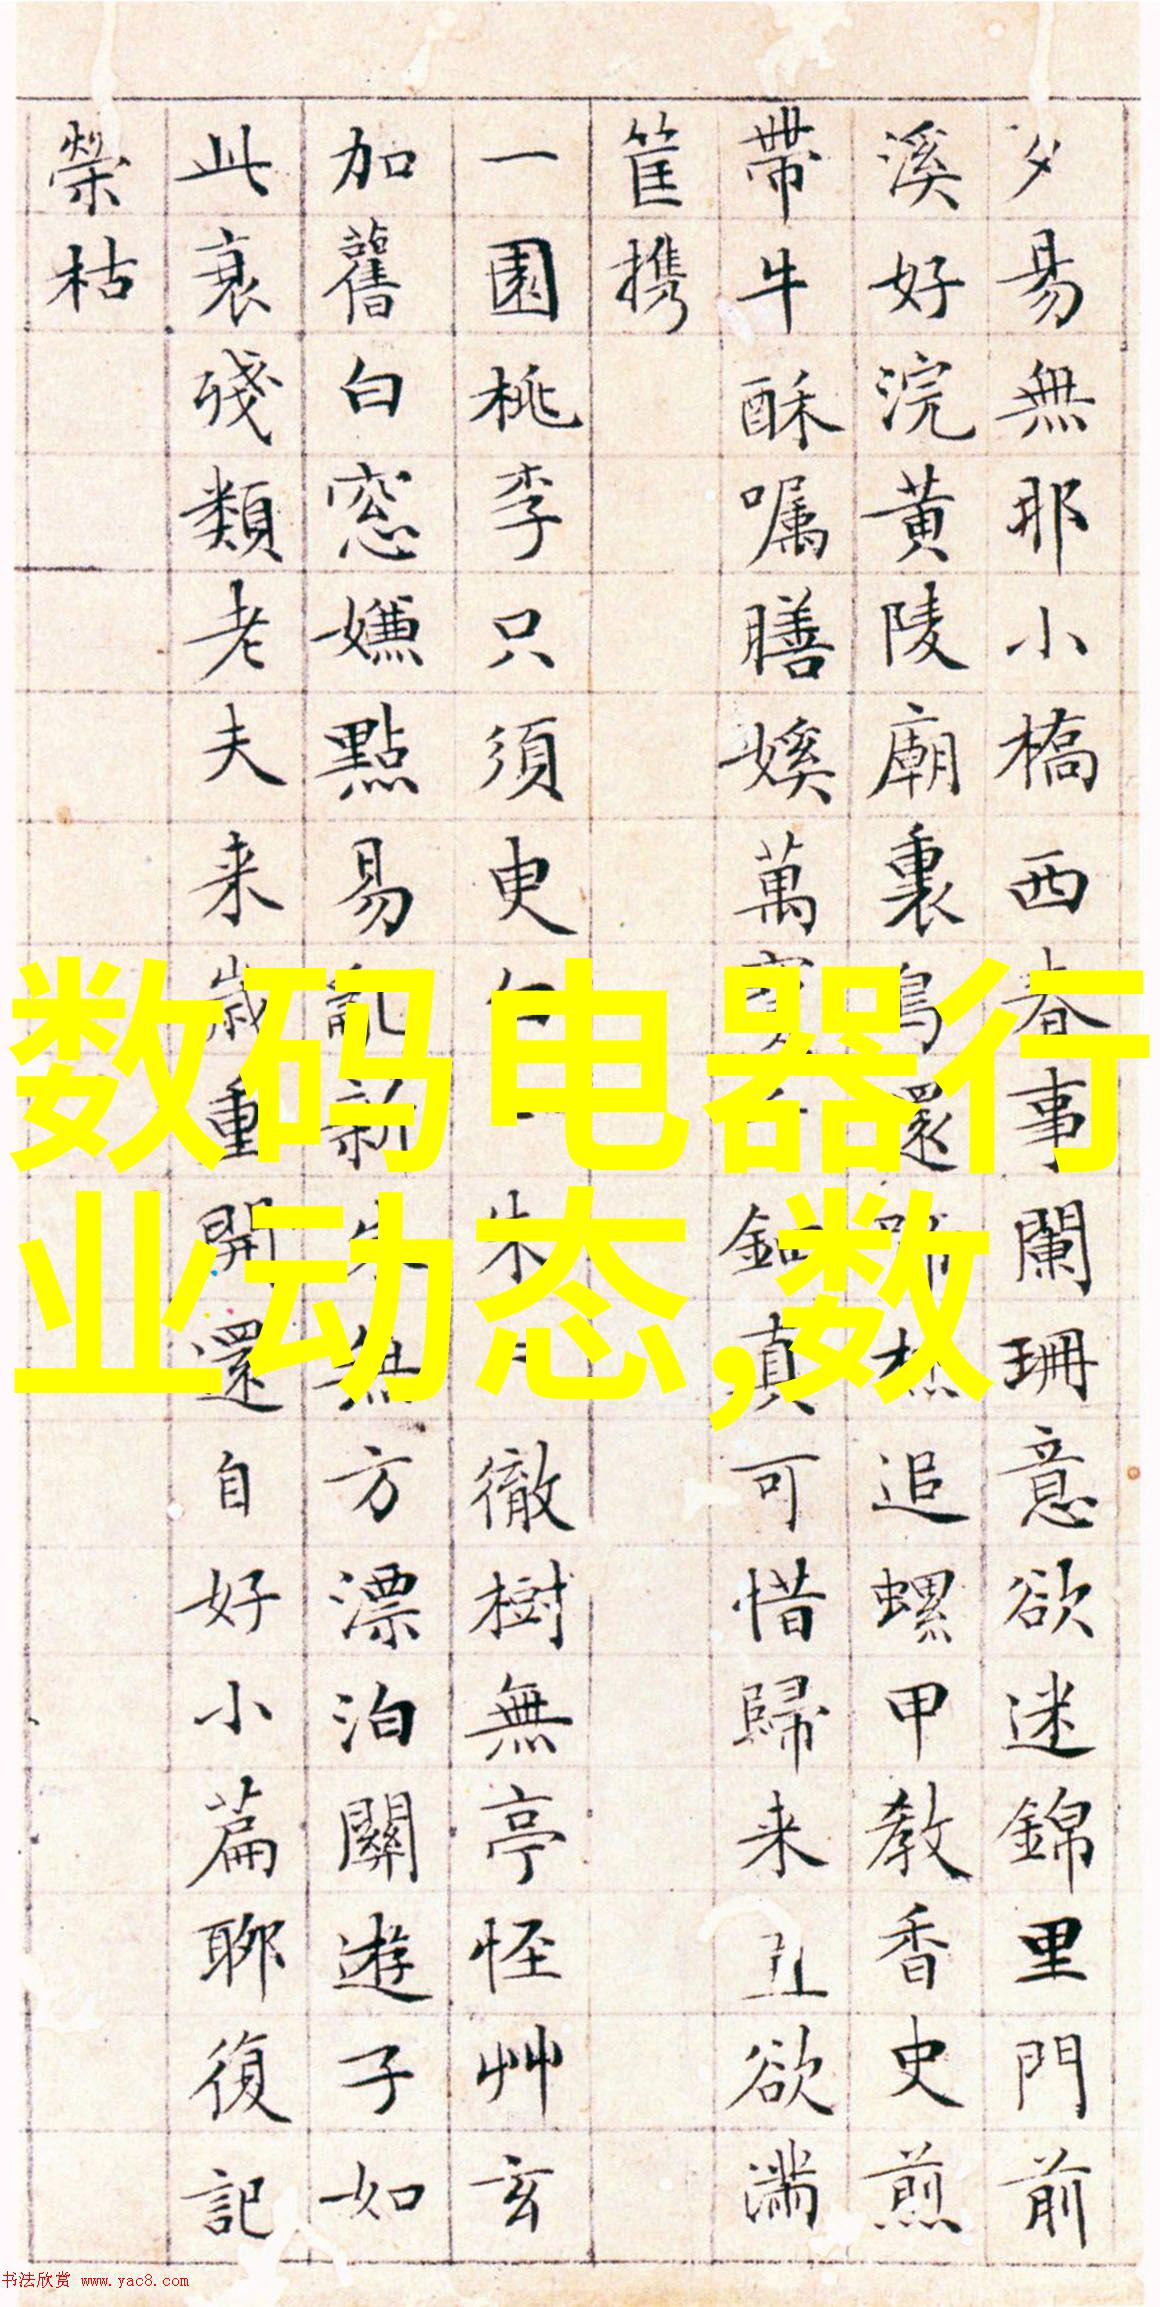 夕易無耶小橋西春事闌珊意欲迷錦里門前
溪好浣黃陵廟裏鳥還啼杰追螺甲教香史煎
帶牛酥嘱膳媛萬鈿真可惜歸来丑欲满
筐携
一園桃李只須臾白朱徹樹無亭怪艸玄
加舊白窓嫌點易亂新朱無方漂泊關遊子如
此衰殘類老夫来歲重開還自好小篇聊復記
榮枯
数码电器行
业动态,数
书法欣赏 www.yac8.com